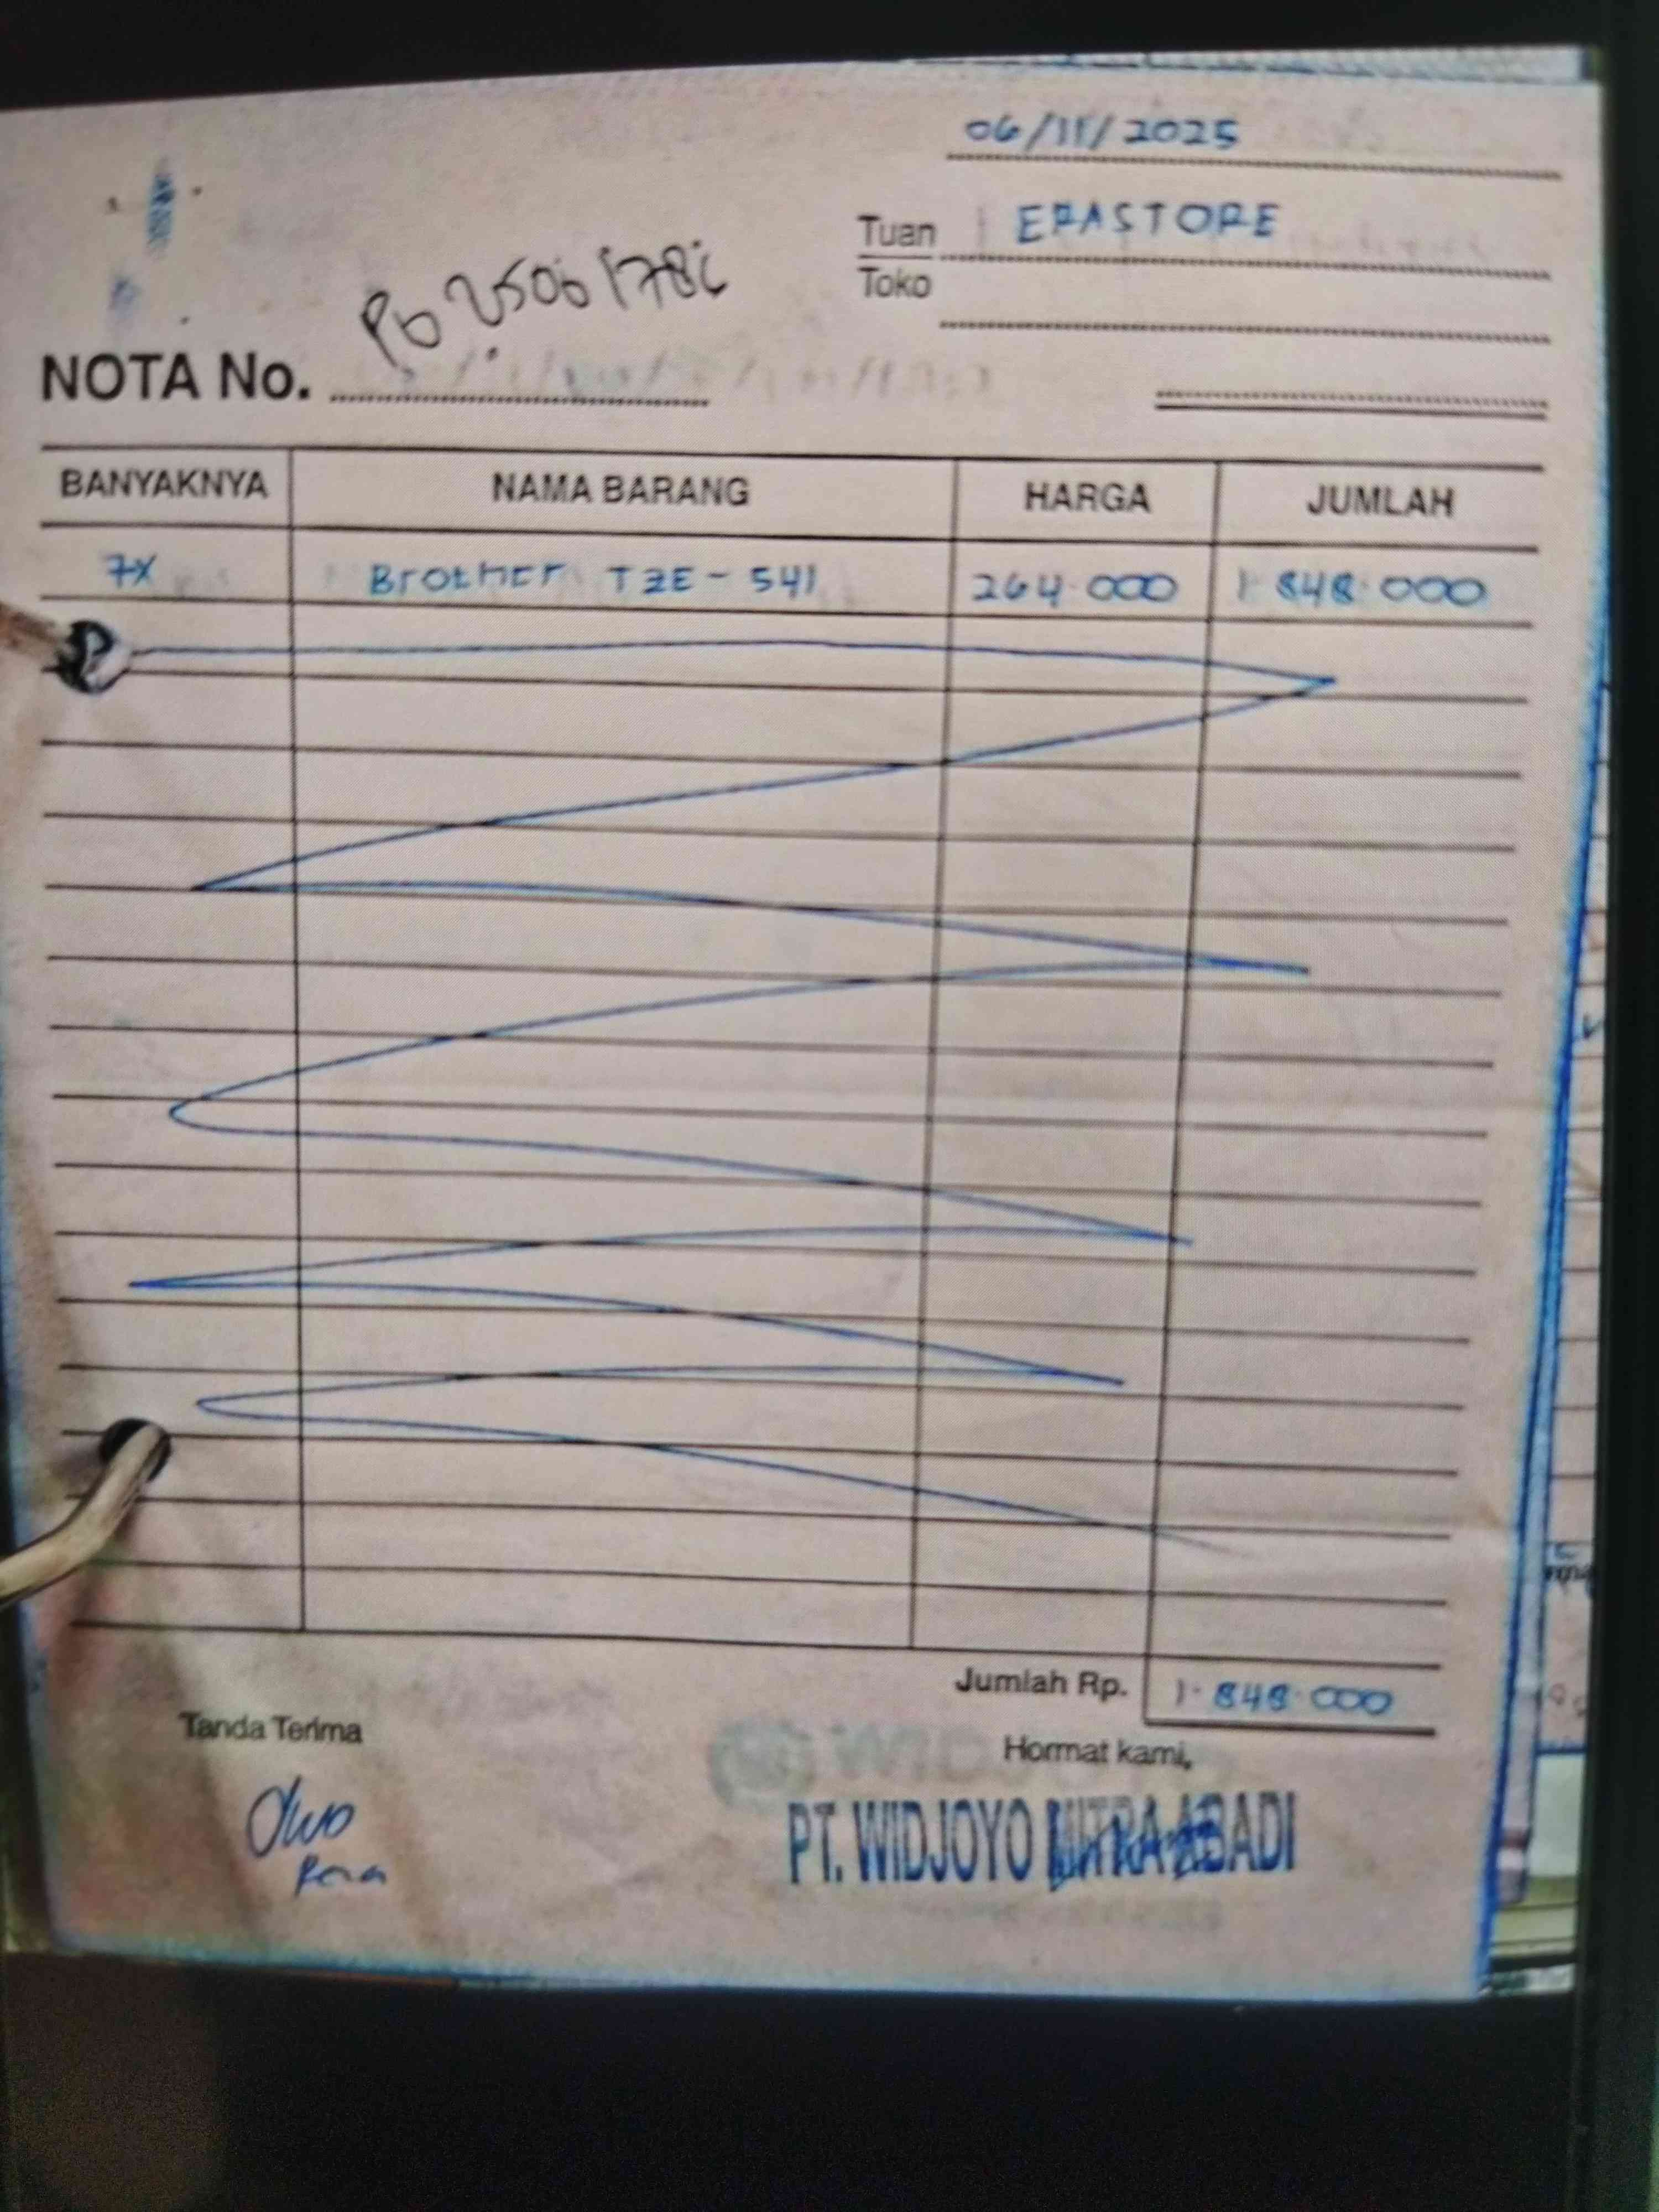 06/11/2025
Tuan EPASTORE
Toko
NOTA No.
BANYAKNYA NAMA BARANG HARGA JUMLAH
7x Brother TZE - 541 264.000 1.848.000
Jumlah Rp. 1.848.000
Tanda Terima
Hormat kami,
PT. WIDJOYO MITRA ABADI